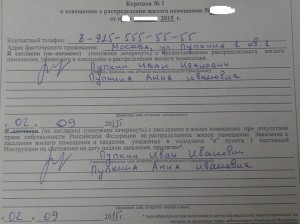 Корешок № 1
к извещению о распределении жилого помещения №
от « 2015 г.
Контактный телефон: 8-925-555-55-55
Адрес фактического проживания: Москва, ул. Пупкина 1 кв. 1
Я согласен (не согласен) (ненужное зачеркнуть) с предоставлением распределенного жилого
помещения, указанного в извещении о распределении жилого помещения
Пупкин Иван Иванович
Пупкина Анна Ивановна
«02» 09 2015г.
Я согласен (не согласен) (ненужное зачеркнуть) с заселением в жилое помещение при отсутствии
права собственности Российской Федерации на распределенное жилое помещение. Заявление о
заселении жилого помещения и сведения, указанные в подпункте и пункте 1 настоящей
Инструкции по состоянию на дату подачи заявления, прилагаю.
Пупкин Иван Иванович
Пупкина Анна Ивановна
«02» 09 2015г.